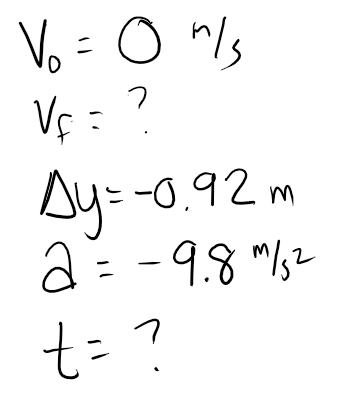 V₀ = 0 m/s
V_f = ?
Δy = -0.92 m
a = -9.8 m/s²
t = ?